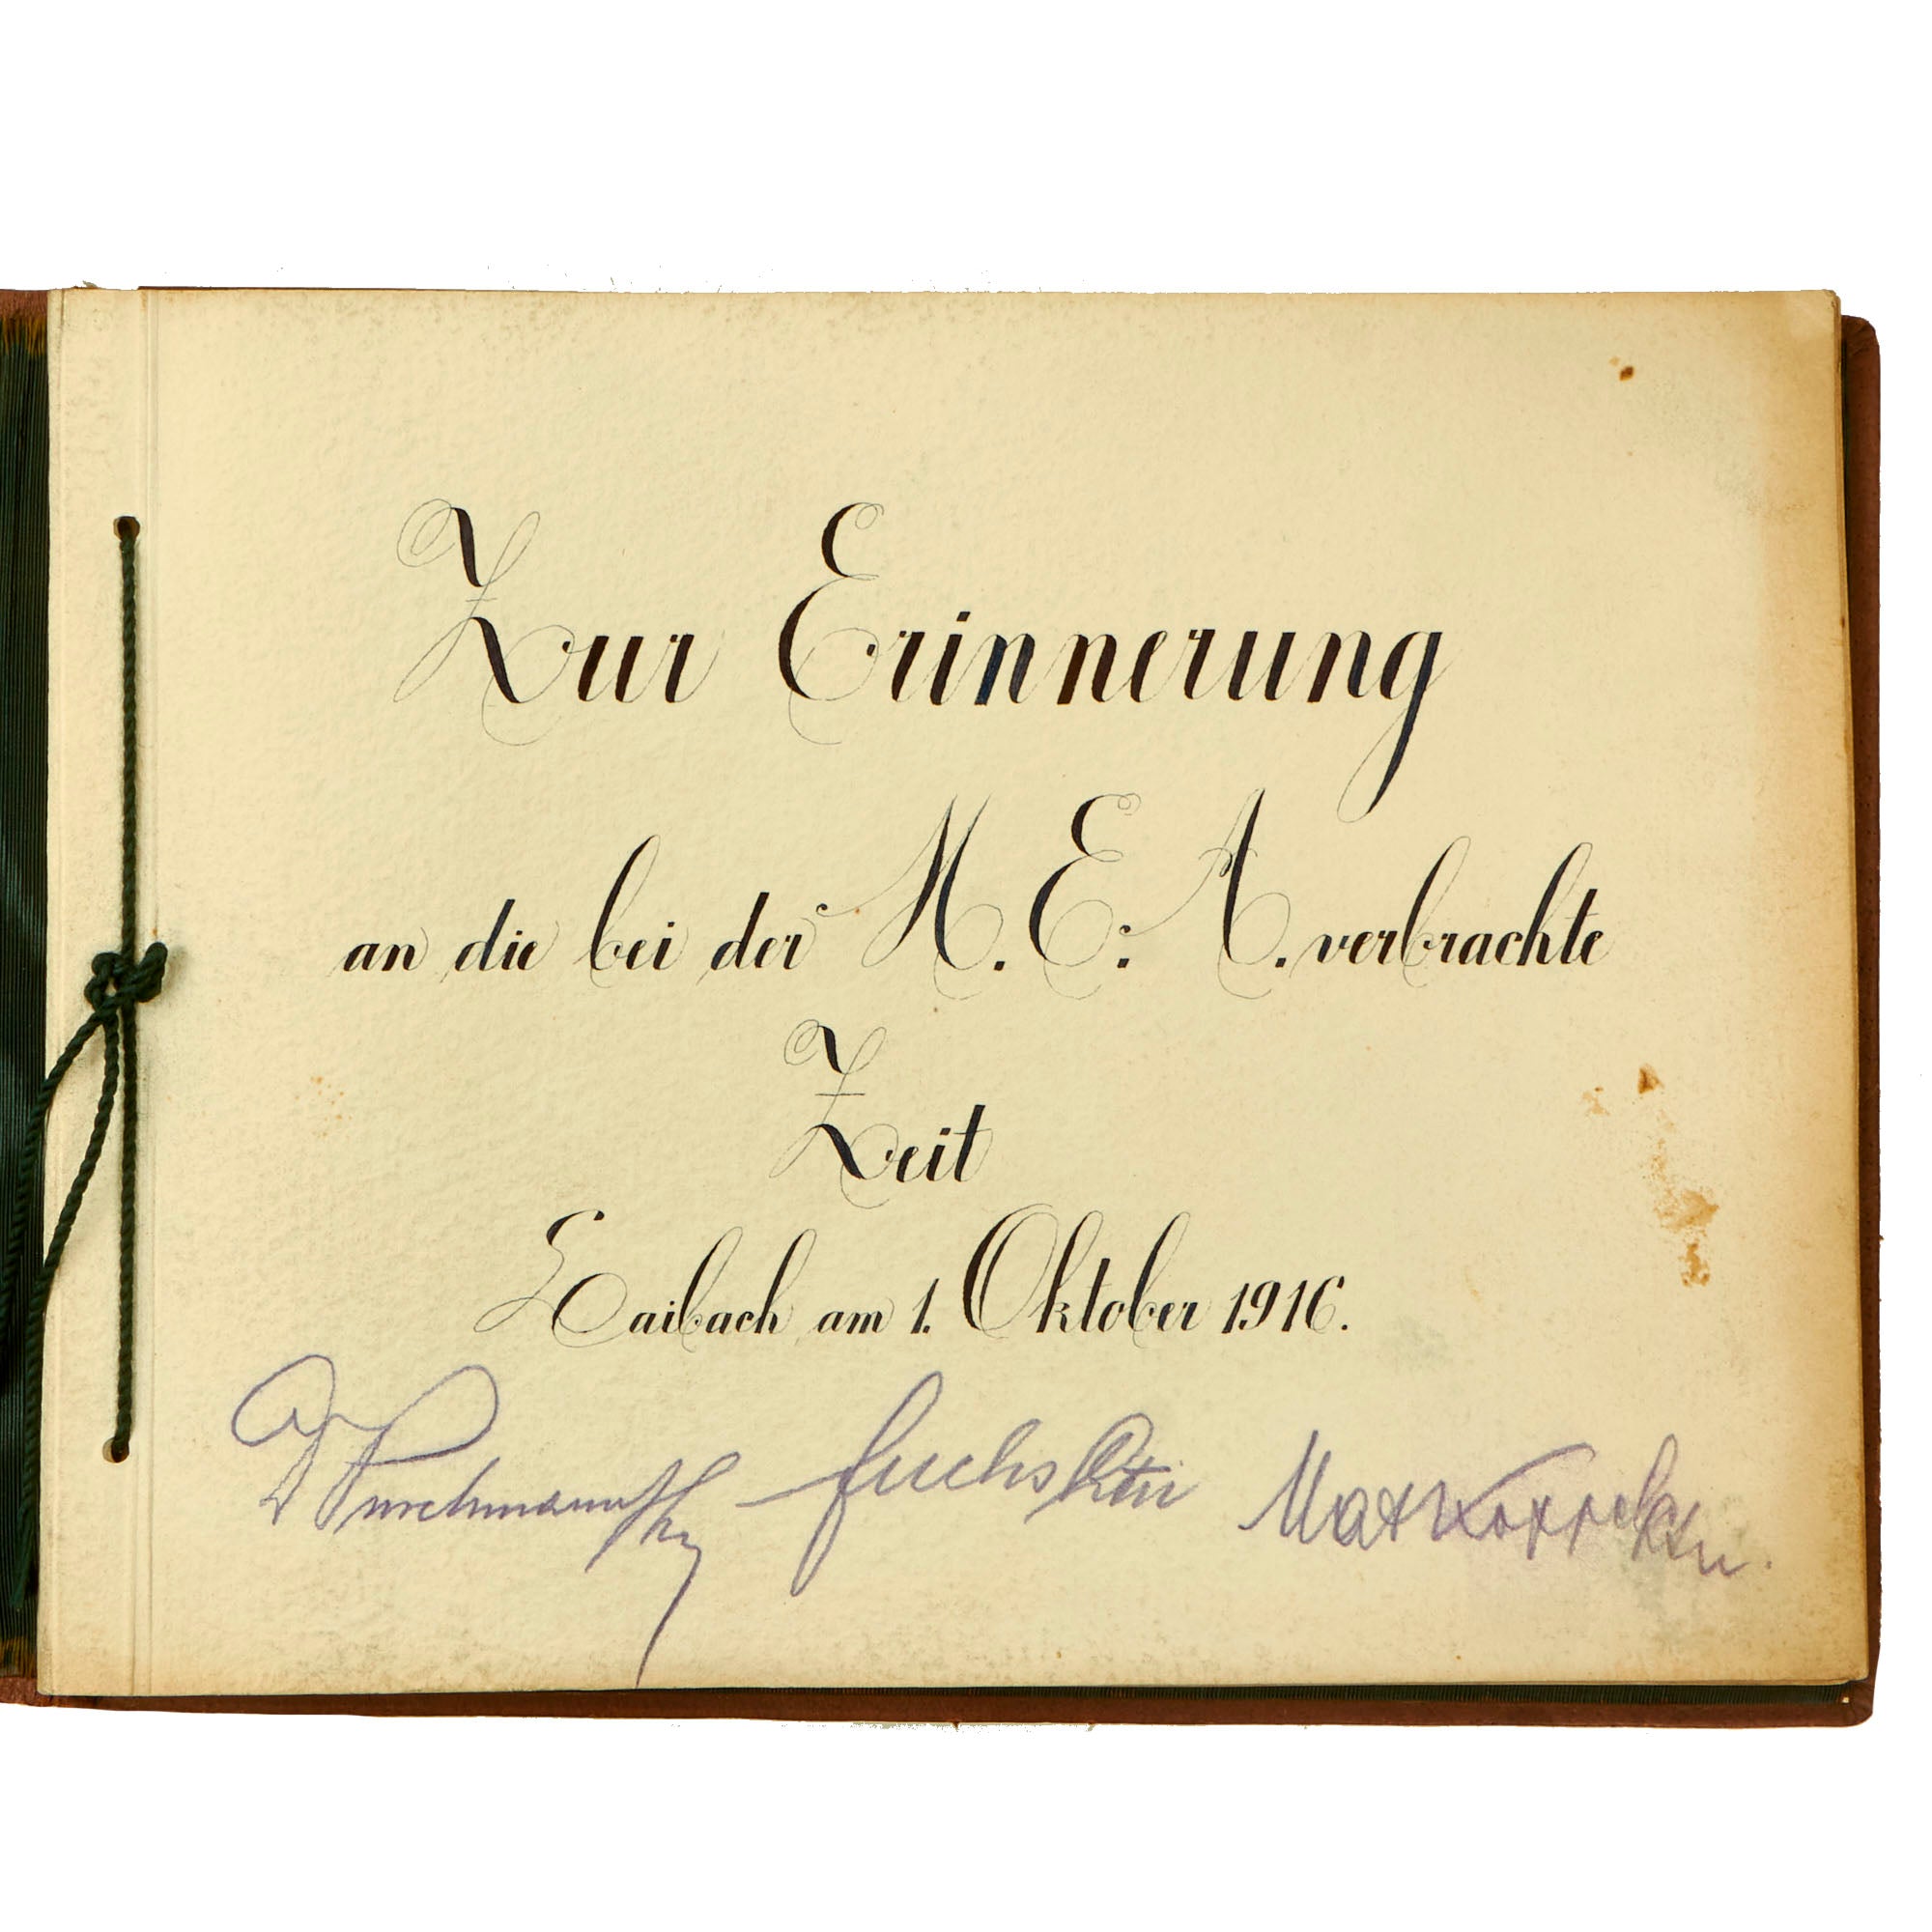 Zur Erinnerung
an die bei der M. E. A. verbrachte
Zeit
Laibach am 1. Oktober 1916.
Fuchs